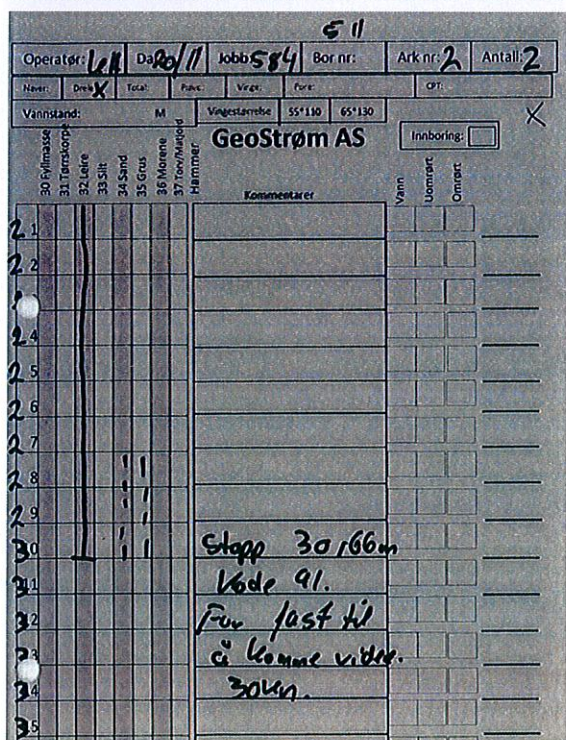 5 11
Operatør: Dato 20/11 Jobb: 584 Bor nr: Ark nr: 2 Antall: 2
Naver: Dreie X Total: Prøve: Vinge: Pore: CPT:
Vannstand: M Vingestørrelse 55*110 65*130 X
GeoStrøm AS Innboring:
30 Fyllmasse
31 Tørrskorpe
32 Leire
33 Silt
34 Sand
35 Grus
36 Morene
37 Torv/Matjord
Hammer
Kommentarer
Vann
Uomrørt
Omrørt
2 1
2 2
2 4
2 5
2 6
2 7
2 8
2 9
30 Stopp 30,66m
3 11 Kode 91.
3 12 For fast til
3 3 å komme videre.
3 4 30kn.
3 5